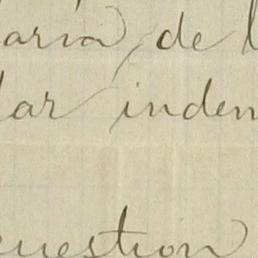 aria, de l
lar indem
uestion